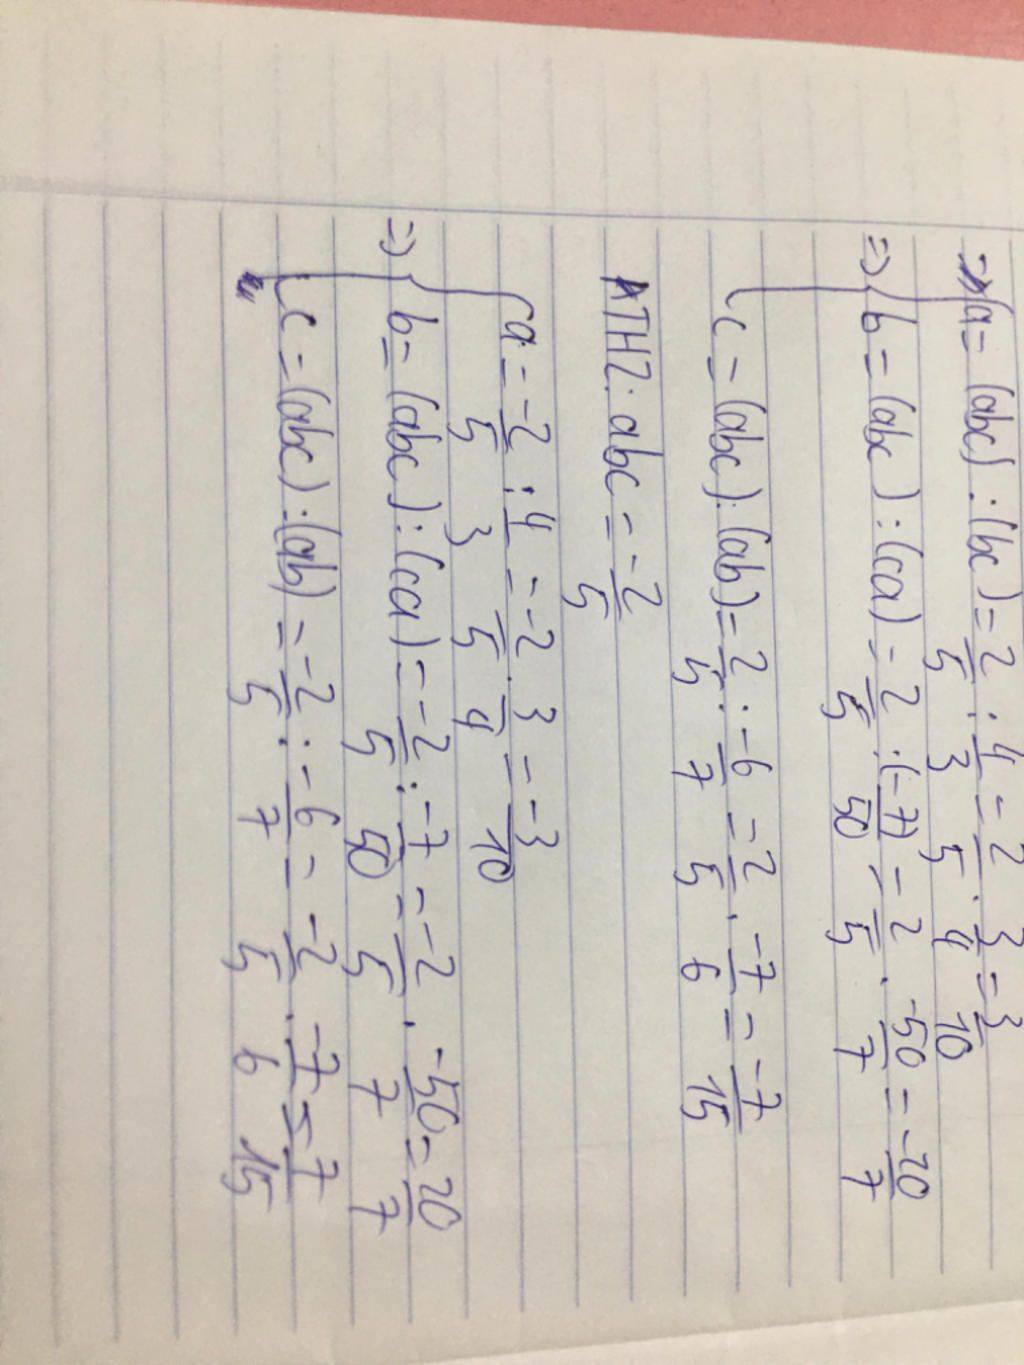 => a = (abc) : (bc) = 2/5 : 4/3 = 2/5 . 3/4 = 3/10
=> b = (abc) : (ca) = 2/5 : (-7)/50 = 2/5 . -50/7 = -20/7
c = (abc) : (ab) = 2/5 : -6/7 = 2/5 . -7/6 = -7/15
TH2: abc = -2/5
a = -2/5 : 4/3 = -2/5 . 3/4 = -3/10
=> b = (abc) : (ca) = -2/5 : -7/50 = -2/5 . -50/7 = 20/7
c = (abc) : (ab) = -2/5 : -6/7 = -2/5 . -7/6 = 7/15